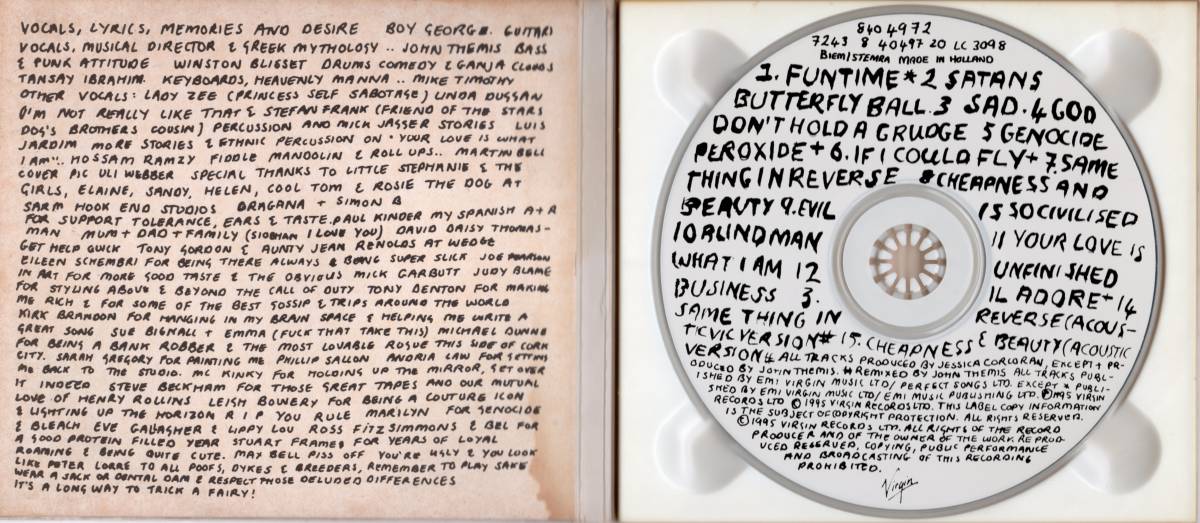 VOCALS, LYRICS, MEMORIES AND DESIRE BOY GEORGE. GUITAR
VOCALS, MUSICAL DIRECTOR & GREEK MYTHOLOGY .. JOHN THEMIS BASS
& PUNK ATTITUDE WINSTON BLISSET DRUMS COMEDY & GANJA CLOUDS
TANSAY IBRAHIM. KEYBOARDS, HEAVENLY MANNA .. MIKE TIMOTHY
OTHER VOCALS: LADY ZEE (PRINCESS SELF SABOTAGE) LINDA DUGGAN
(I'M NOT REALLY LIKE THAT & STEFAN FRANK (FRIEND OF THE STARS
DOG'S BROTHERS COUSIN) PERCUSSION AND MICK JAGGER STORIES LUIS
JARDIM MORE STORIES & ETHNIC PERCUSSION ON "YOUR LOVE IS WHAT
I AM".. HOSSAM RAMZY FIDDLE MANDOLIN & ROLL UPS.. MARTIN BELL
COVER PIC ULI WEBBER SPECIAL THANKS TO LITTLE STEPHANIE & THE
GIRLS, ELAINE, SANDY, HELEN, COOL TOM & ROSIE THE DOG AT
SARM HOOK END STUDIOS DRAGANA + SIMON B
FOR SUPPORT TOLERANCE, EARS & TASTE. PAUL KINDER MY SPANISH A+R
MAN MUM + DAD + FAMILY (SIOBHAN I LOVE YOU) DAVID DAISY THOMAS-
GET HELP QUICK TONY GORDON & AUNTY JEAN RENOLDS AT WEDGE
EILEEN SCHEMBRI FOR BEING THERE ALWAYS & BEING SUPER SLICK JOE PEARSON
IN ART FOR MORE GOOD TASTE & THE OBVIOUS MICK GARBUTT JUDY BLAME
FOR STYLING ABOVE & BEYOND THE CALL OF DUTY TONY DENTON FOR MAKING
ME RICH & FOR SOME OF THE BEST GOSSIP & TRIPS AROUND THE WORLD
KIRK BRANDON FOR HANGING IN MY BRAIN SPACE & HELPING ME WRITE A
GREAT SONG SUE BIGNALL + EMMA (FUCK THAT TAKE THIS) MICHAEL DUNNE
FOR BEING A BANK ROBBER & THE MOST LOVABLE ROGUE THIS SIDE OF CORK
CITY. SARAH GREGORY FOR PAINTING ME PHILLIP SALLON ANDRIA LAW FOR GETTING
ME BACK TO THE STUDIO. MC KINKY FOR HOLDING UP THE MIRROR, GET OVER
IT INDEED STEVE BECKHAM FOR THOSE GREAT TAPES AND OUR MUTUAL
LOVE OF HENRY ROLLINS LEIGH BOWERY FOR BEING A COUTURE ICON
& LIGHTING UP THE HORIZON R I P YOU RULE MARILYN FOR GENOCIDE
& BLEACH EVE GALLAGHER & LIPPY LOU ROSS FITZSIMMONS & BEL FOR
A GOOD PROTEIN FILLED YEAR STUART FRAMES FOR YEARS OF LOYAL
ROAMING & BEING QUITE CUTE. MAX BELL PISS OFF YOU'RE UGLY & YOU LOOK
LIKE PETER LORRE TO ALL POOFS, DYKES & BREEDERS, REMEMBER TO PLAY SAFE
WEAR A SACK OR DENTAL DAM & RESPECT THOSE DELUDED DIFFERENCES
IT'S A LONG WAY TO TRICK A FAIRY!
840 4972
7243 8 40497 20 LC 3098
BIEM/STEMRA MADE IN HOLLAND
1. FUNTIME* 2 SATANS
BUTTERFLY BALL. 3 SAD. 4 GOD
DON'T HOLD A GRUDGE 5 GENOCIDE
PEROXIDE + 6. IF I COULD FLY + 7. SAME
THING IN REVERSE 8 CHEAPNESS AND
BEAUTY 9. EVIL IS SO CIVILISED
10 BLINDMAN 11 YOUR LOVE IS
WHAT I AM 12 UNFINISHED
BUSINESS 3. IL ADORE + 14
SAME THING IN REVERSE (ACOUS-
TIC VERSION # 15. CHEAPNESS & BEAUTY (ACOUSTIC
VERSION # ALL TRACKS PRODUCED BY JESSICA CORCORAN, EXCEPT + PR-
ODUCED BY JOHN THEMIS. # REMIXED BY JOHN THEMIS ALL TRACKS PUBL-
ISHED BY EMI VIRGIN MUSIC LTD/ PERFECT SONGS LTD. EXCEPT * PUBLI-
SHED BY EMI VIRGIN MUSIC LTD/ EMI MUSIC PUBLISHING LTD. ℗ 1995 VIRGIN
RECORDS LTD © 1995 VIRGIN RECORDS LTD. THIS LABEL COPY INFORMATION
IS THE SUBJECT OF COPYRIGHT PROTECTION. ALL RIGHTS RESERVED.
© 1995 VIRGIN RECORDS LTD. ALL RIGHTS OF THE RECORD
PRODUCER AND OF THE OWNER OF THE WORK REPROD-
UCED RESERVED. COPYING, PUBLIC PERFORMANCE
AND BROADCASTING OF THIS RECORDING
PROHIBITED.
Virgin